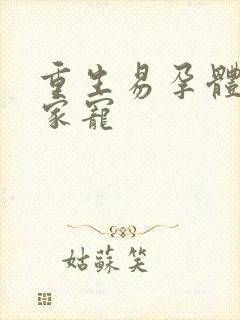 重生易孕體
家寵
姑蘇笑